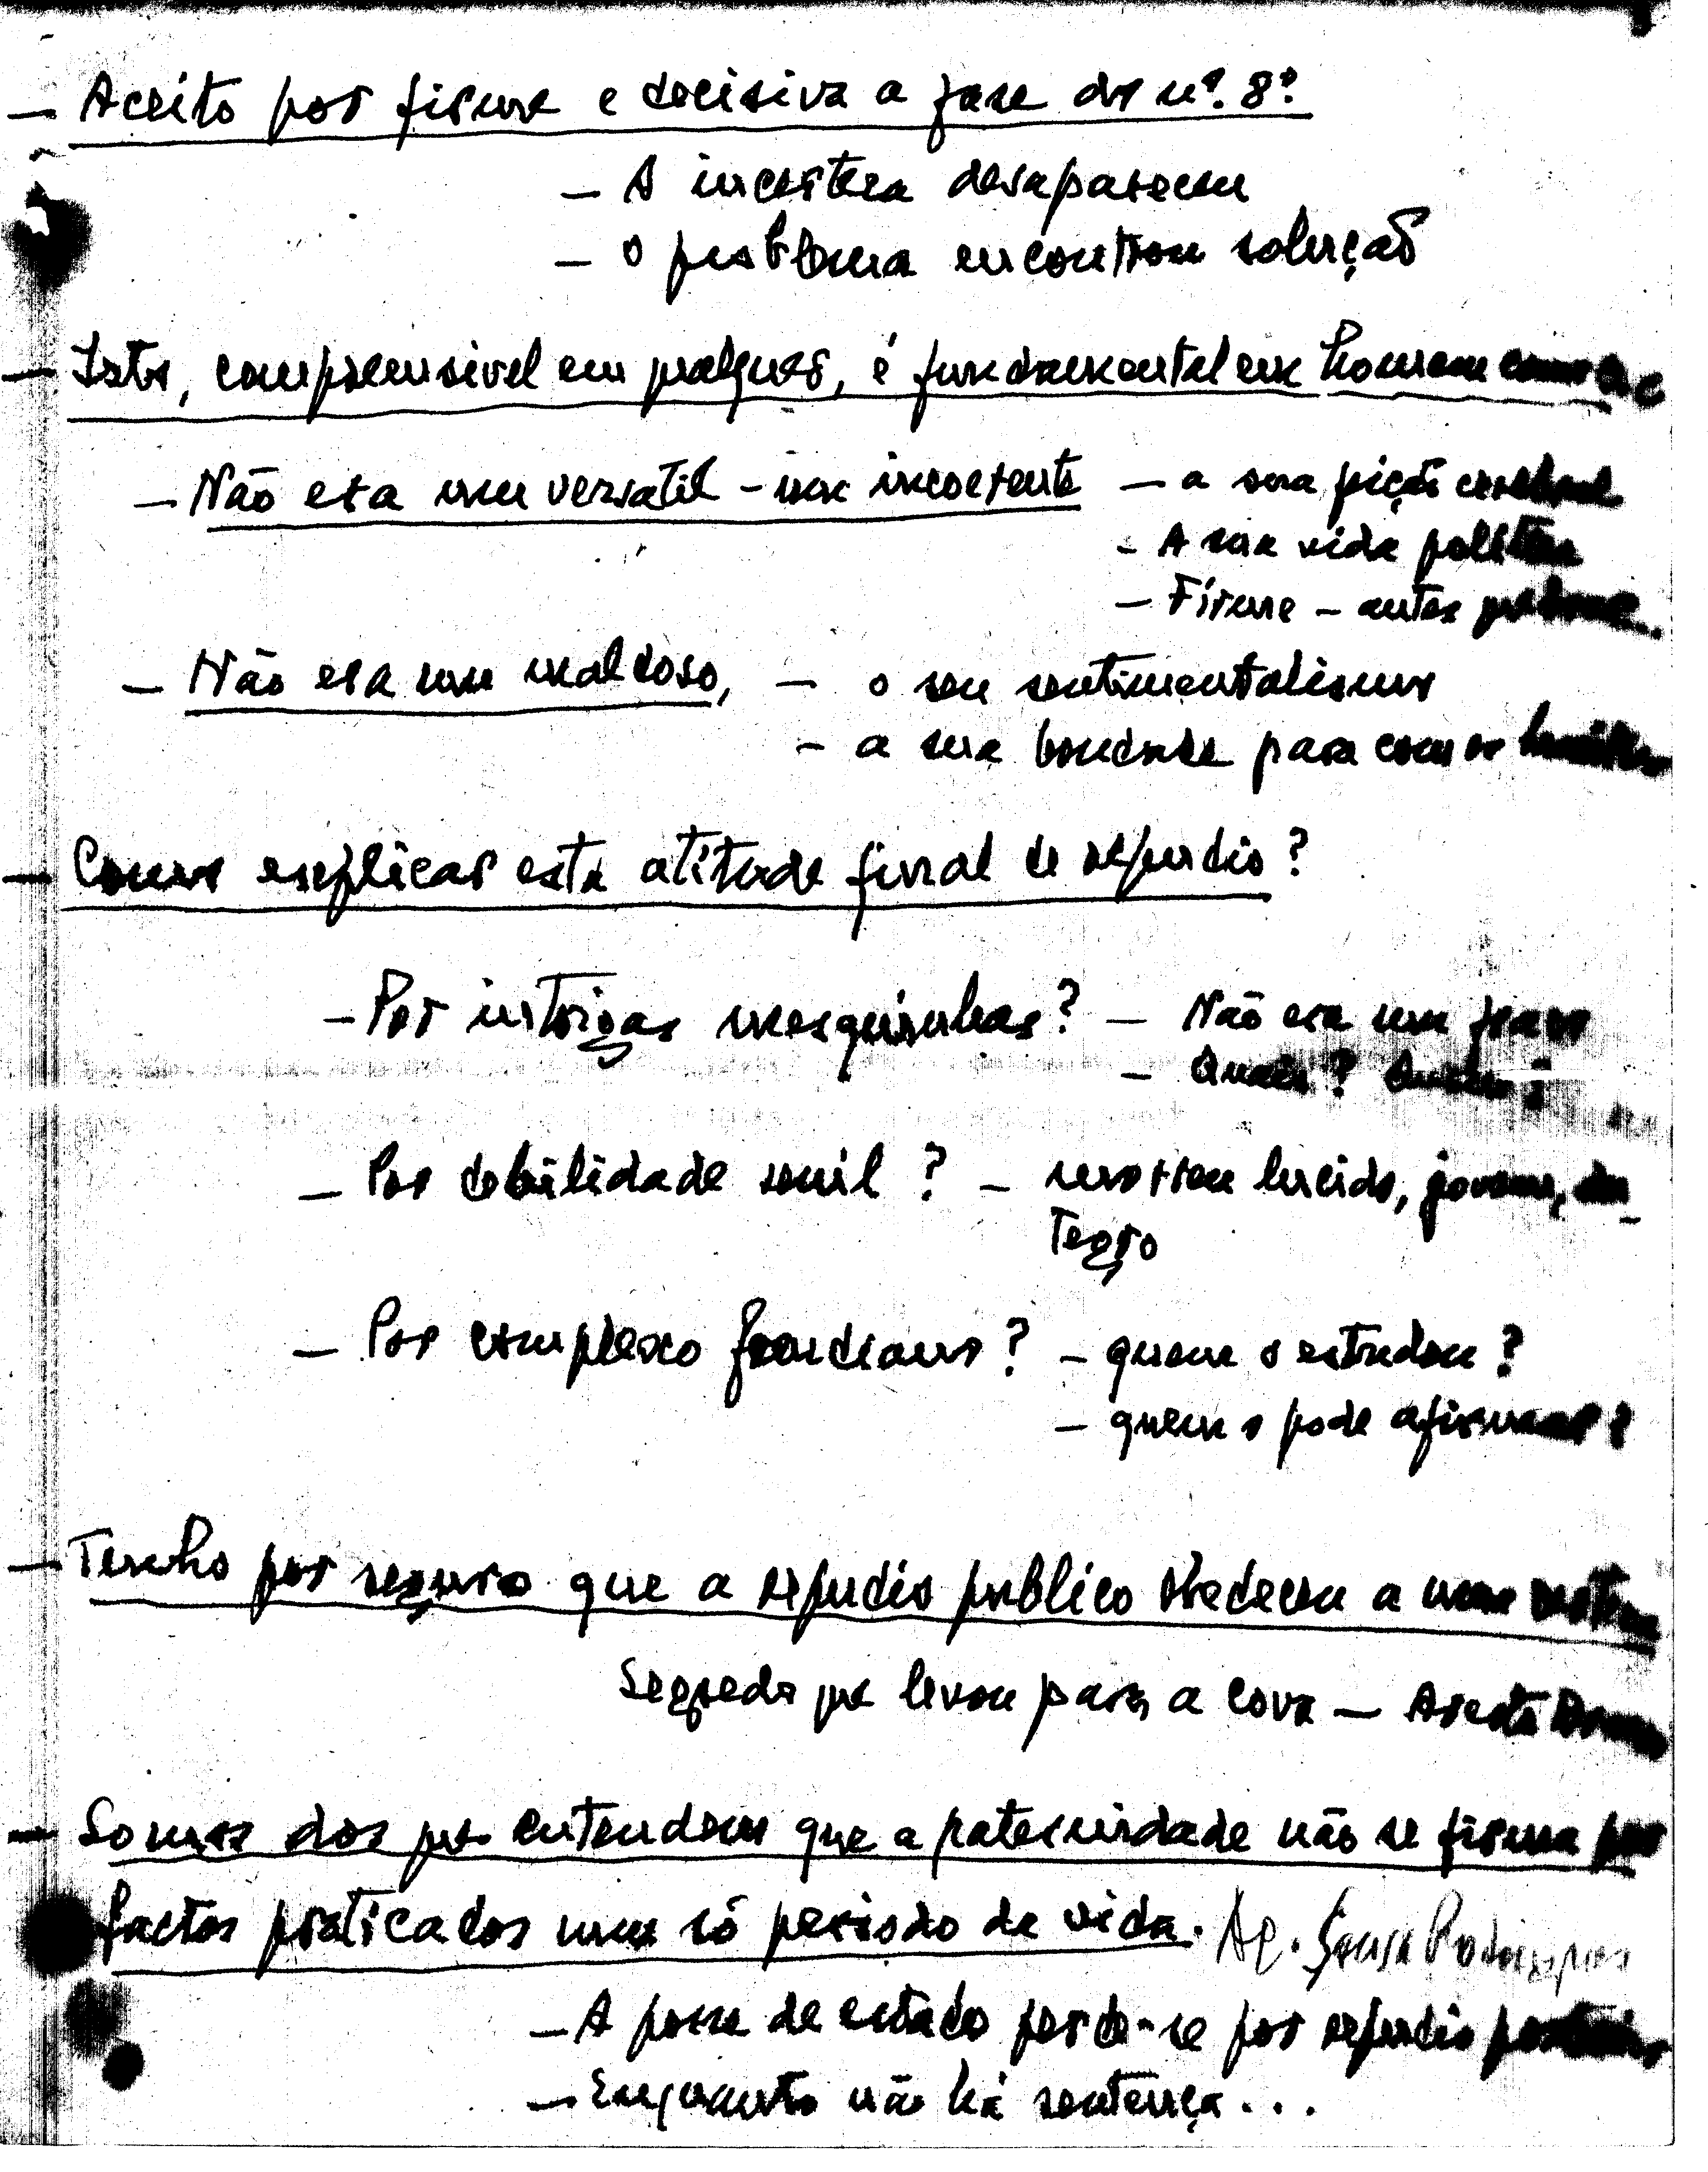 — Aceito por firme e decisiva a fase do nº. 8º.
— A incerteza desapareceu
— o problema encontrou solução
— Isto, compreensivel em qualquer, é fundamental em homem como
— Não era um versatil - um incoerente — a sua
- A sua vida politica
— Firme — antes
— Não era um maldoso, — o seu sentimentalismo
- a sua bondade para com os humildes
— Como explicar esta atitude final de repudio?
— Por intrigas mesquinhas? — Não era um fraco
— Quais?
— Por debilidade senil? — morreu lucido, jovem, in-
tegro
— Por complexo freudiano? — quem o estudou?
— quem o pode afirmar?
— Tenho por seguro que o repudio publico obedeceu a uma
Segredo que levou para a cova —
— Somos dos que entendem que a paternidade não se firma por
factos praticados num só periodo da vida. Ap. Sousa Rodrigues
— A posse de estado perde-se por repudio posterior
— Enquanto não há sentença...